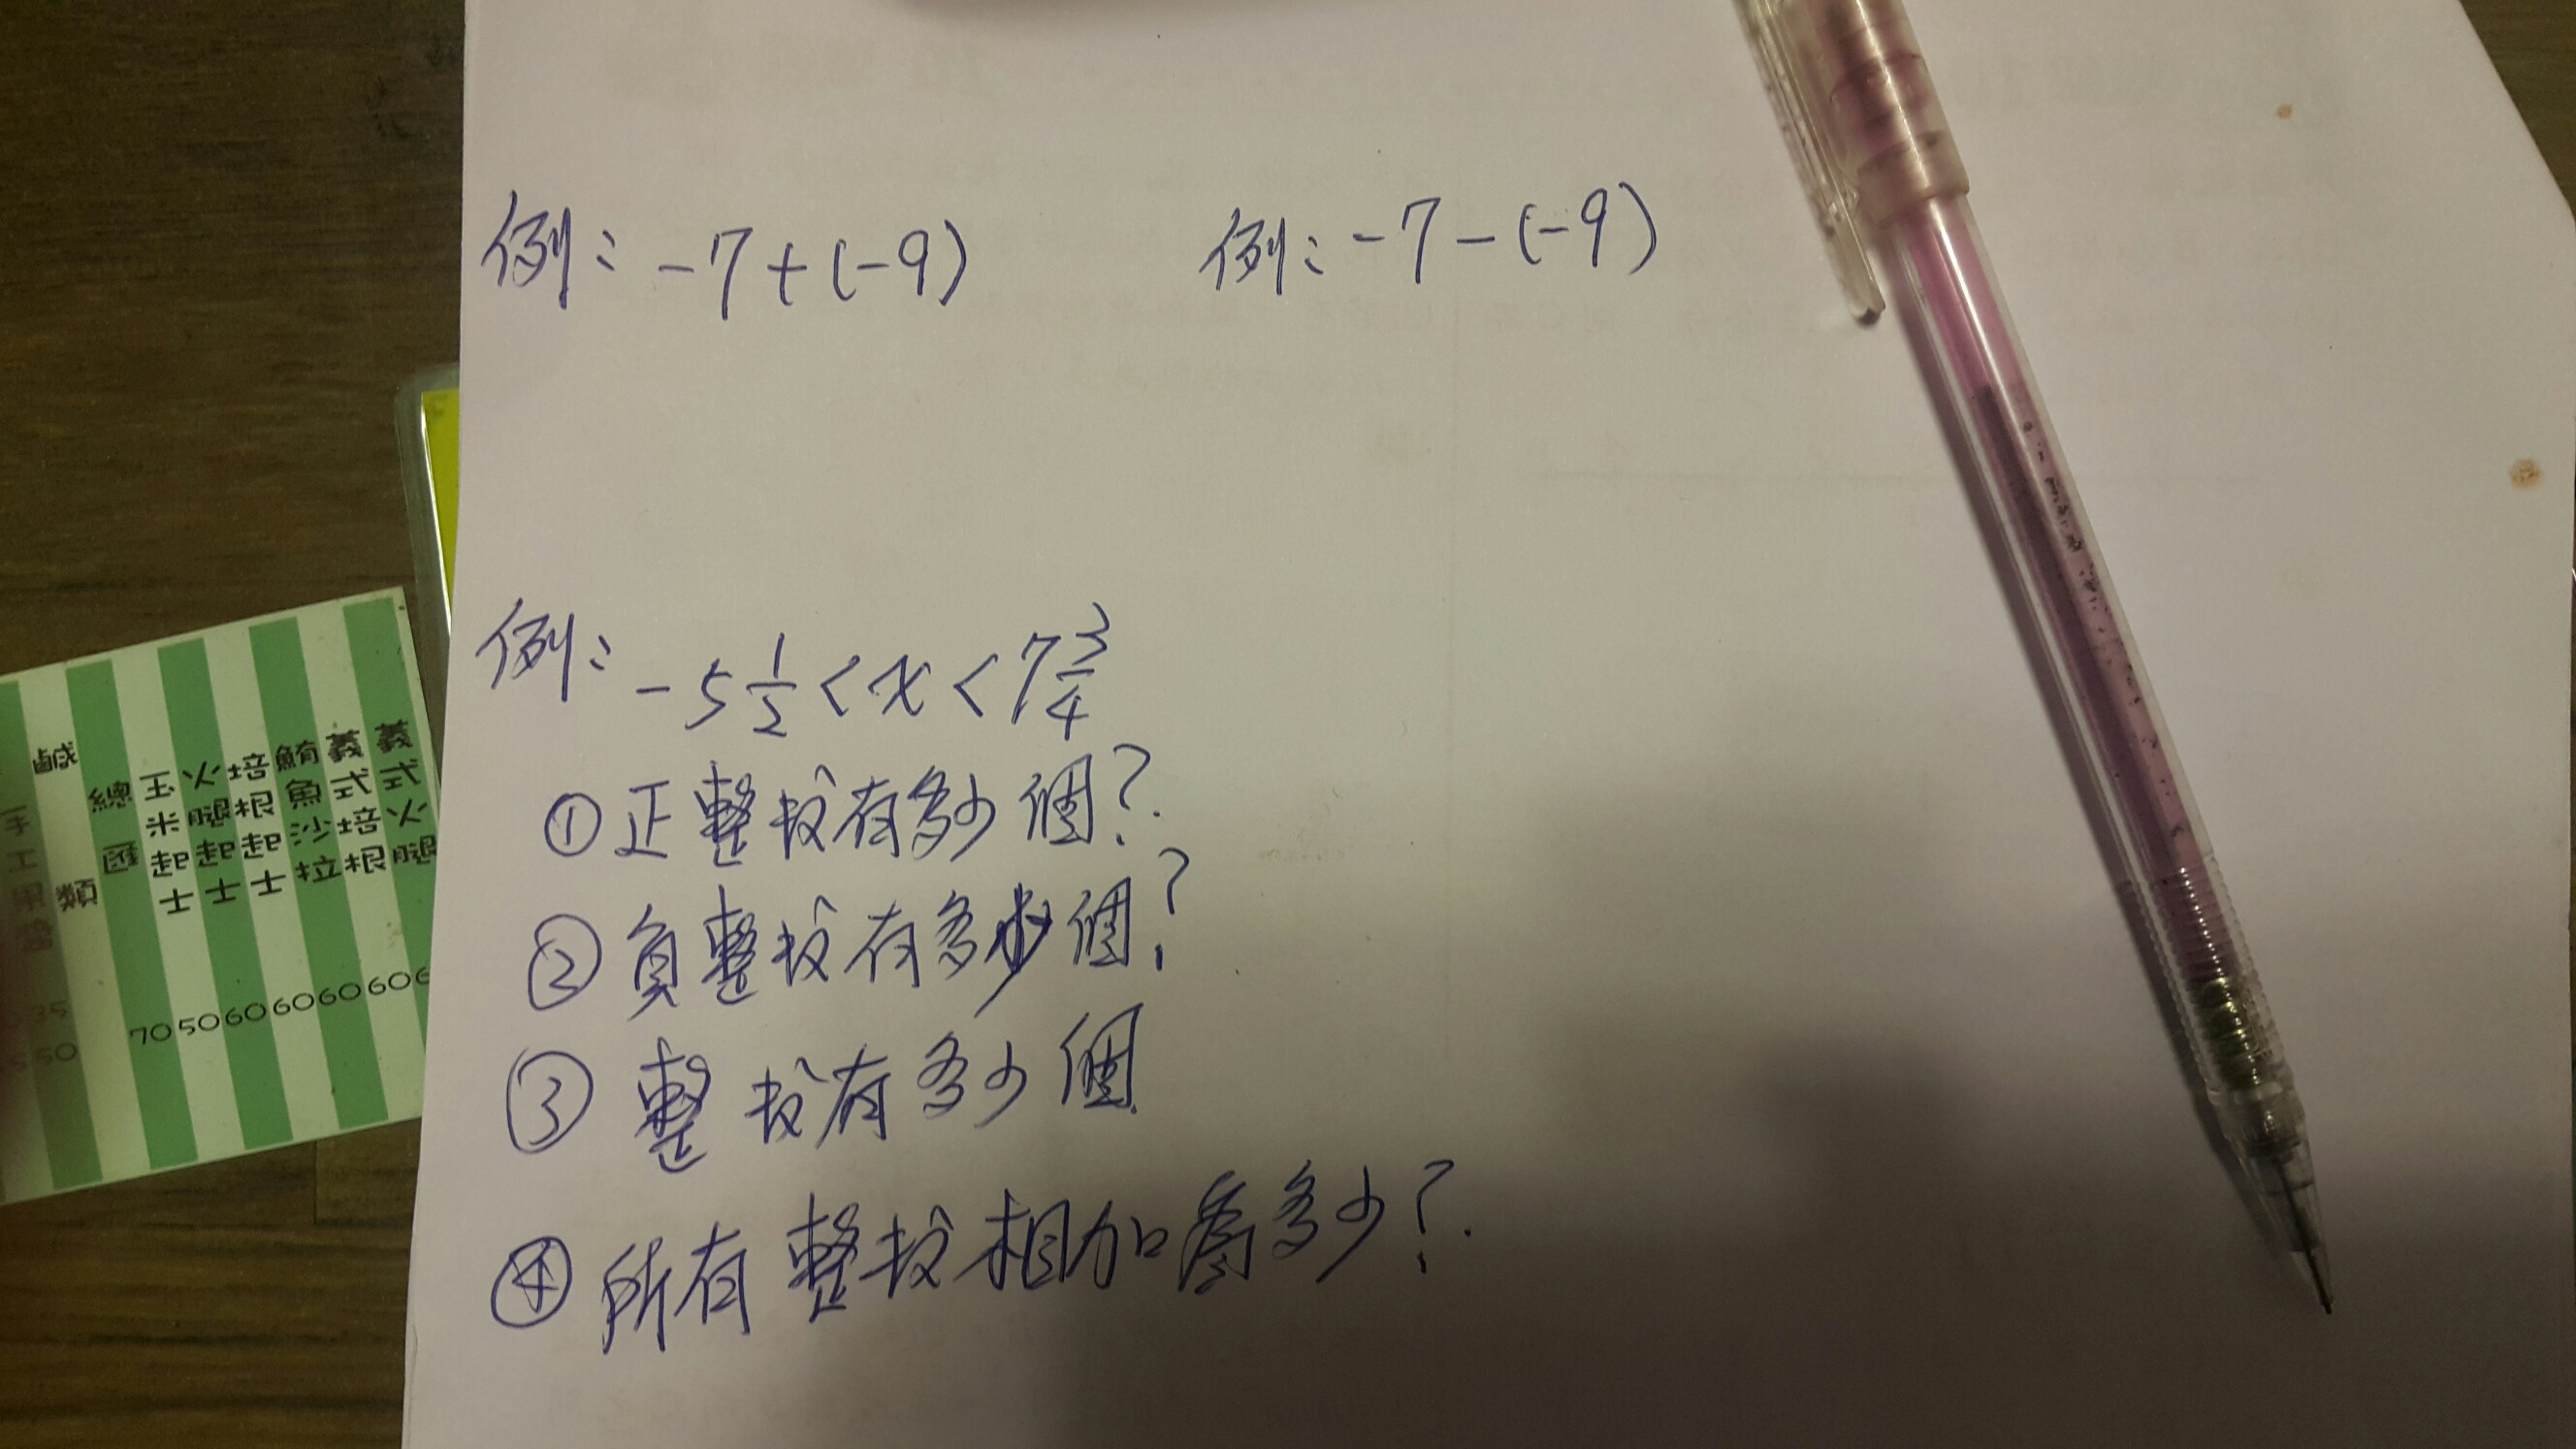 例：-7+(-9)
例：-7-(-9)
例：-5 1/2 < x < 7 3/4
①正整数有多少個？
②負整数有多少個？
③整数有多少個
④所有整数相加為多少？
鹹 類
總 匯 70
玉米起士 50
火腿起士 60
培根起士 60
鮪魚沙拉 60
義式培根 60
義式火腿 6
手工果醬
35
50